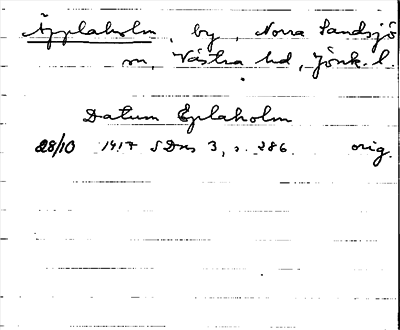 Äpplaholm, by, Norra Sandsjö
sn, Västra hd, Jönk. l.
Datum Eplaholm
28/10 1417 SDns 3, s. 286. orig.